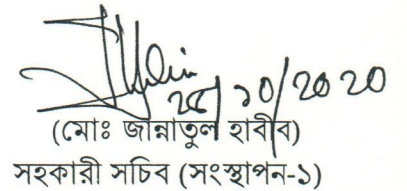 ২৫/১০/২০২০
(মোঃ জান্নাতুল হাবীব)
সহকারী সচিব (সংস্থাপন-১)